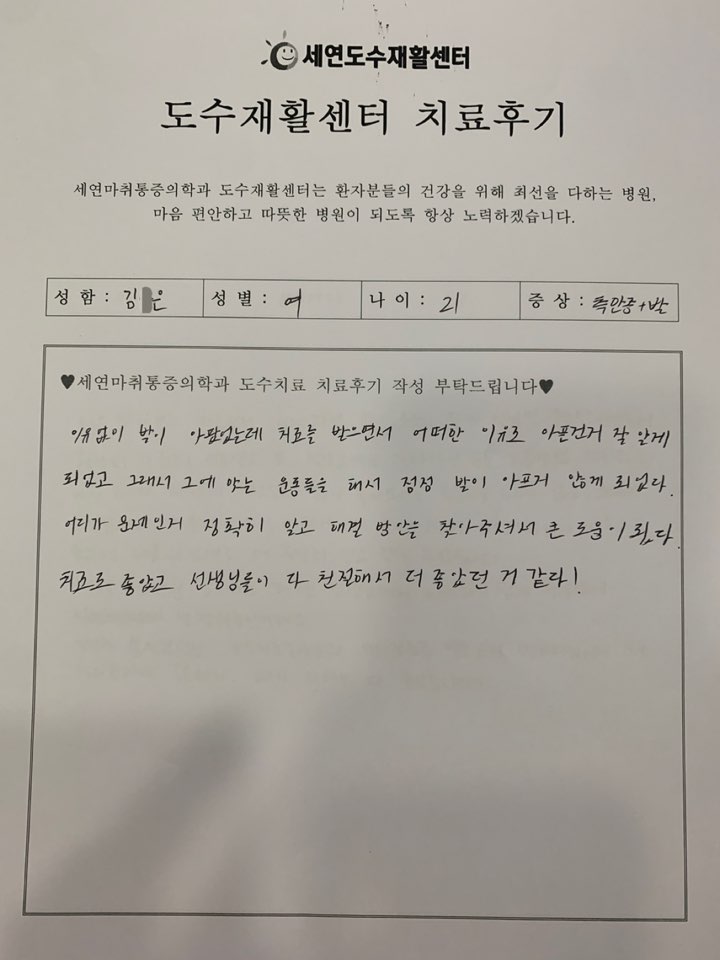 세연도수재활센터
도수재활센터 치료후기
세연마취통증의학과 도수재활센터는 환자분들의 건강을 위해 최선을 다하는 병원,
마음 편안하고 따뜻한 병원이 되도록 항상 노력하겠습니다.
성 함 : 김 은 성 별 : 여 나 이 : 21 증 상 : 측만증+발
♥세연마취통증의학과 도수치료 치료후기 작성 부탁드립니다♥
이유없이 발이 아팠었는데 치료를 받으면서 어떠한 이유로 아픈건지 잘 알게
되었고 그래서 그에 맞는 운동들을 해서 점점 발이 아프지 않게 되었다.
어디가 문제인지 정확히 알고 해결 방안을 찾아주셔서 큰 도움이 됐다.
치료도 좋았고 선생님들이 다 친절해서 더 좋았던 거 같다!